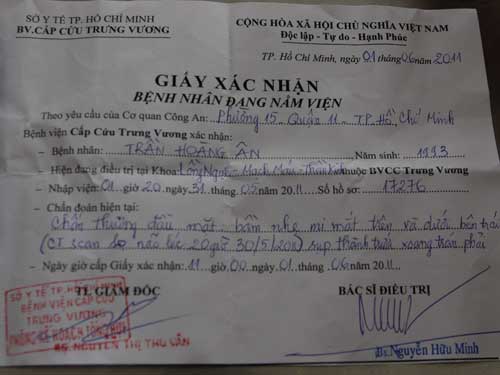 SỞ Y TẾ TP. HỒ CHÍ MINH
BV.CẤP CỨU TRƯNG VƯƠNG
CỘNG HÒA XÃ HỘI CHỦ NGHĨA VIỆT NAM
Độc lập - Tự do - Hạnh Phúc
TP. Hồ Chí Minh, ngày 01 tháng 06 năm 2011
GIẤY XÁC NHẬN
BỆNH NHÂN ĐANG NẰM VIỆN
Theo yêu cầu của Cơ quan Công An: Phường 15 - Quận 11 - TP. Hồ Chí Minh
Bệnh viện Cấp Cứu Trưng Vương xác nhận:
- Bệnh nhân: TRẦN HOÀNG ÂN Năm sinh: 1993
- Hiện đang điều trị tại Khoa Lồng Ngực - Mạch Máu - Thần Kinh thuộc BVCC Trưng Vương
- Nhập viện: 01 giờ 20 ngày 31 tháng 05 năm 2011 Số hồ sơ: 17276
- Chẩn đoán hiện tại:
Chấn thương đầu mặt: bầm nhẹ mi mắt trên và dưới bên trái
(CT scan sọ não lúc 20 giờ 30/5/2011) sụp thành trước xoang trán phải
- Ngày giờ cấp Giấy xác nhận: 11 giờ 00 ngày 01 tháng 06 năm 2011
TL GIÁM ĐỐC
BÁC SĨ ĐIỀU TRỊ
SỞ Y TẾ TP. HỒ CHÍ MINH
BỆNH VIỆN CẤP CỨU
TRƯNG VƯƠNG
PHÒNG KẾ HOẠCH TỔNG HỢP
BS. NGUYỄN THỊ THU VÂN
Bs. Nguyễn Hữu Minh